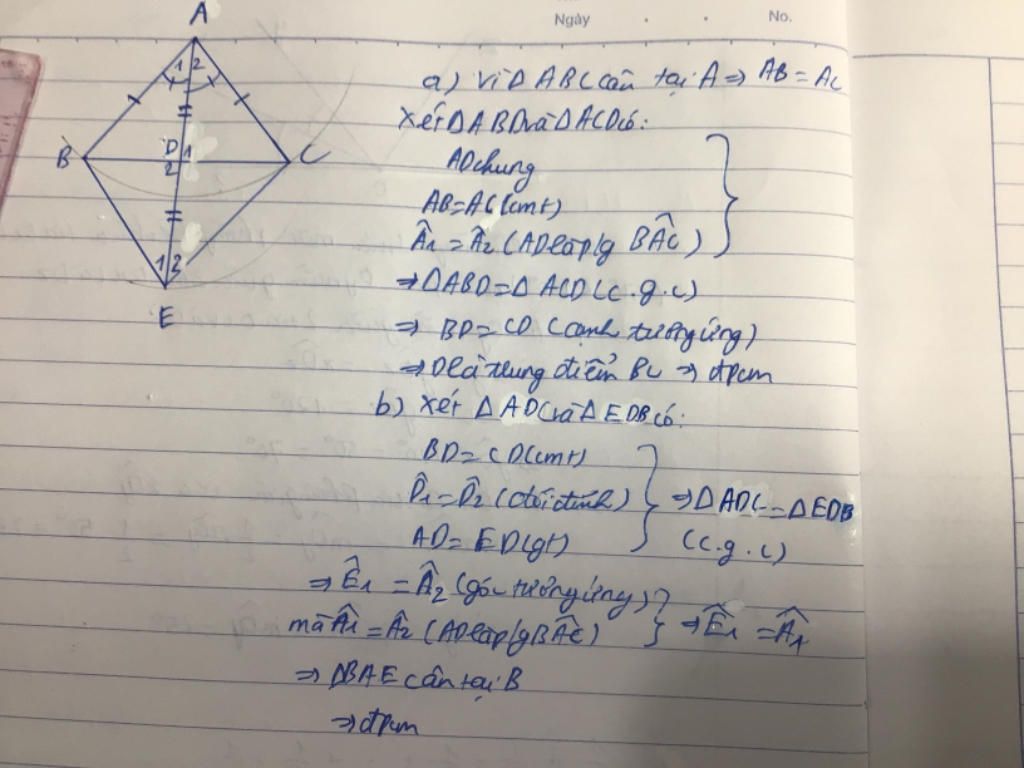 Ngày . . No.
A
1 2
B D 1 C
2
1 2
E
a) Vì Δ ABC cân tại A => AB = AC
Xét Δ ABD và Δ ACD có:
AD chung
AB = AC (cmt)
Â1 = Â2 (AD là p/g BÂC)
=> Δ ABD = Δ ACD (c.g.c)
=> BD = CD (cạnh tương ứng)
=> D là trung điểm BC => đpcm
b) Xét Δ ADC và Δ EDB có:
BD = CD (cmt)
D̂1 = D̂2 (đối đỉnh) => Δ ADC = Δ EDB
AD = ED (gt) (c.g.c)
=> Ê1 = Â2 (góc tương ứng)
mà Â1 = Â2 (AD là p/g BÂC) => Ê1 = Â1
=> ΔBAE cân tại B
=> đpcm